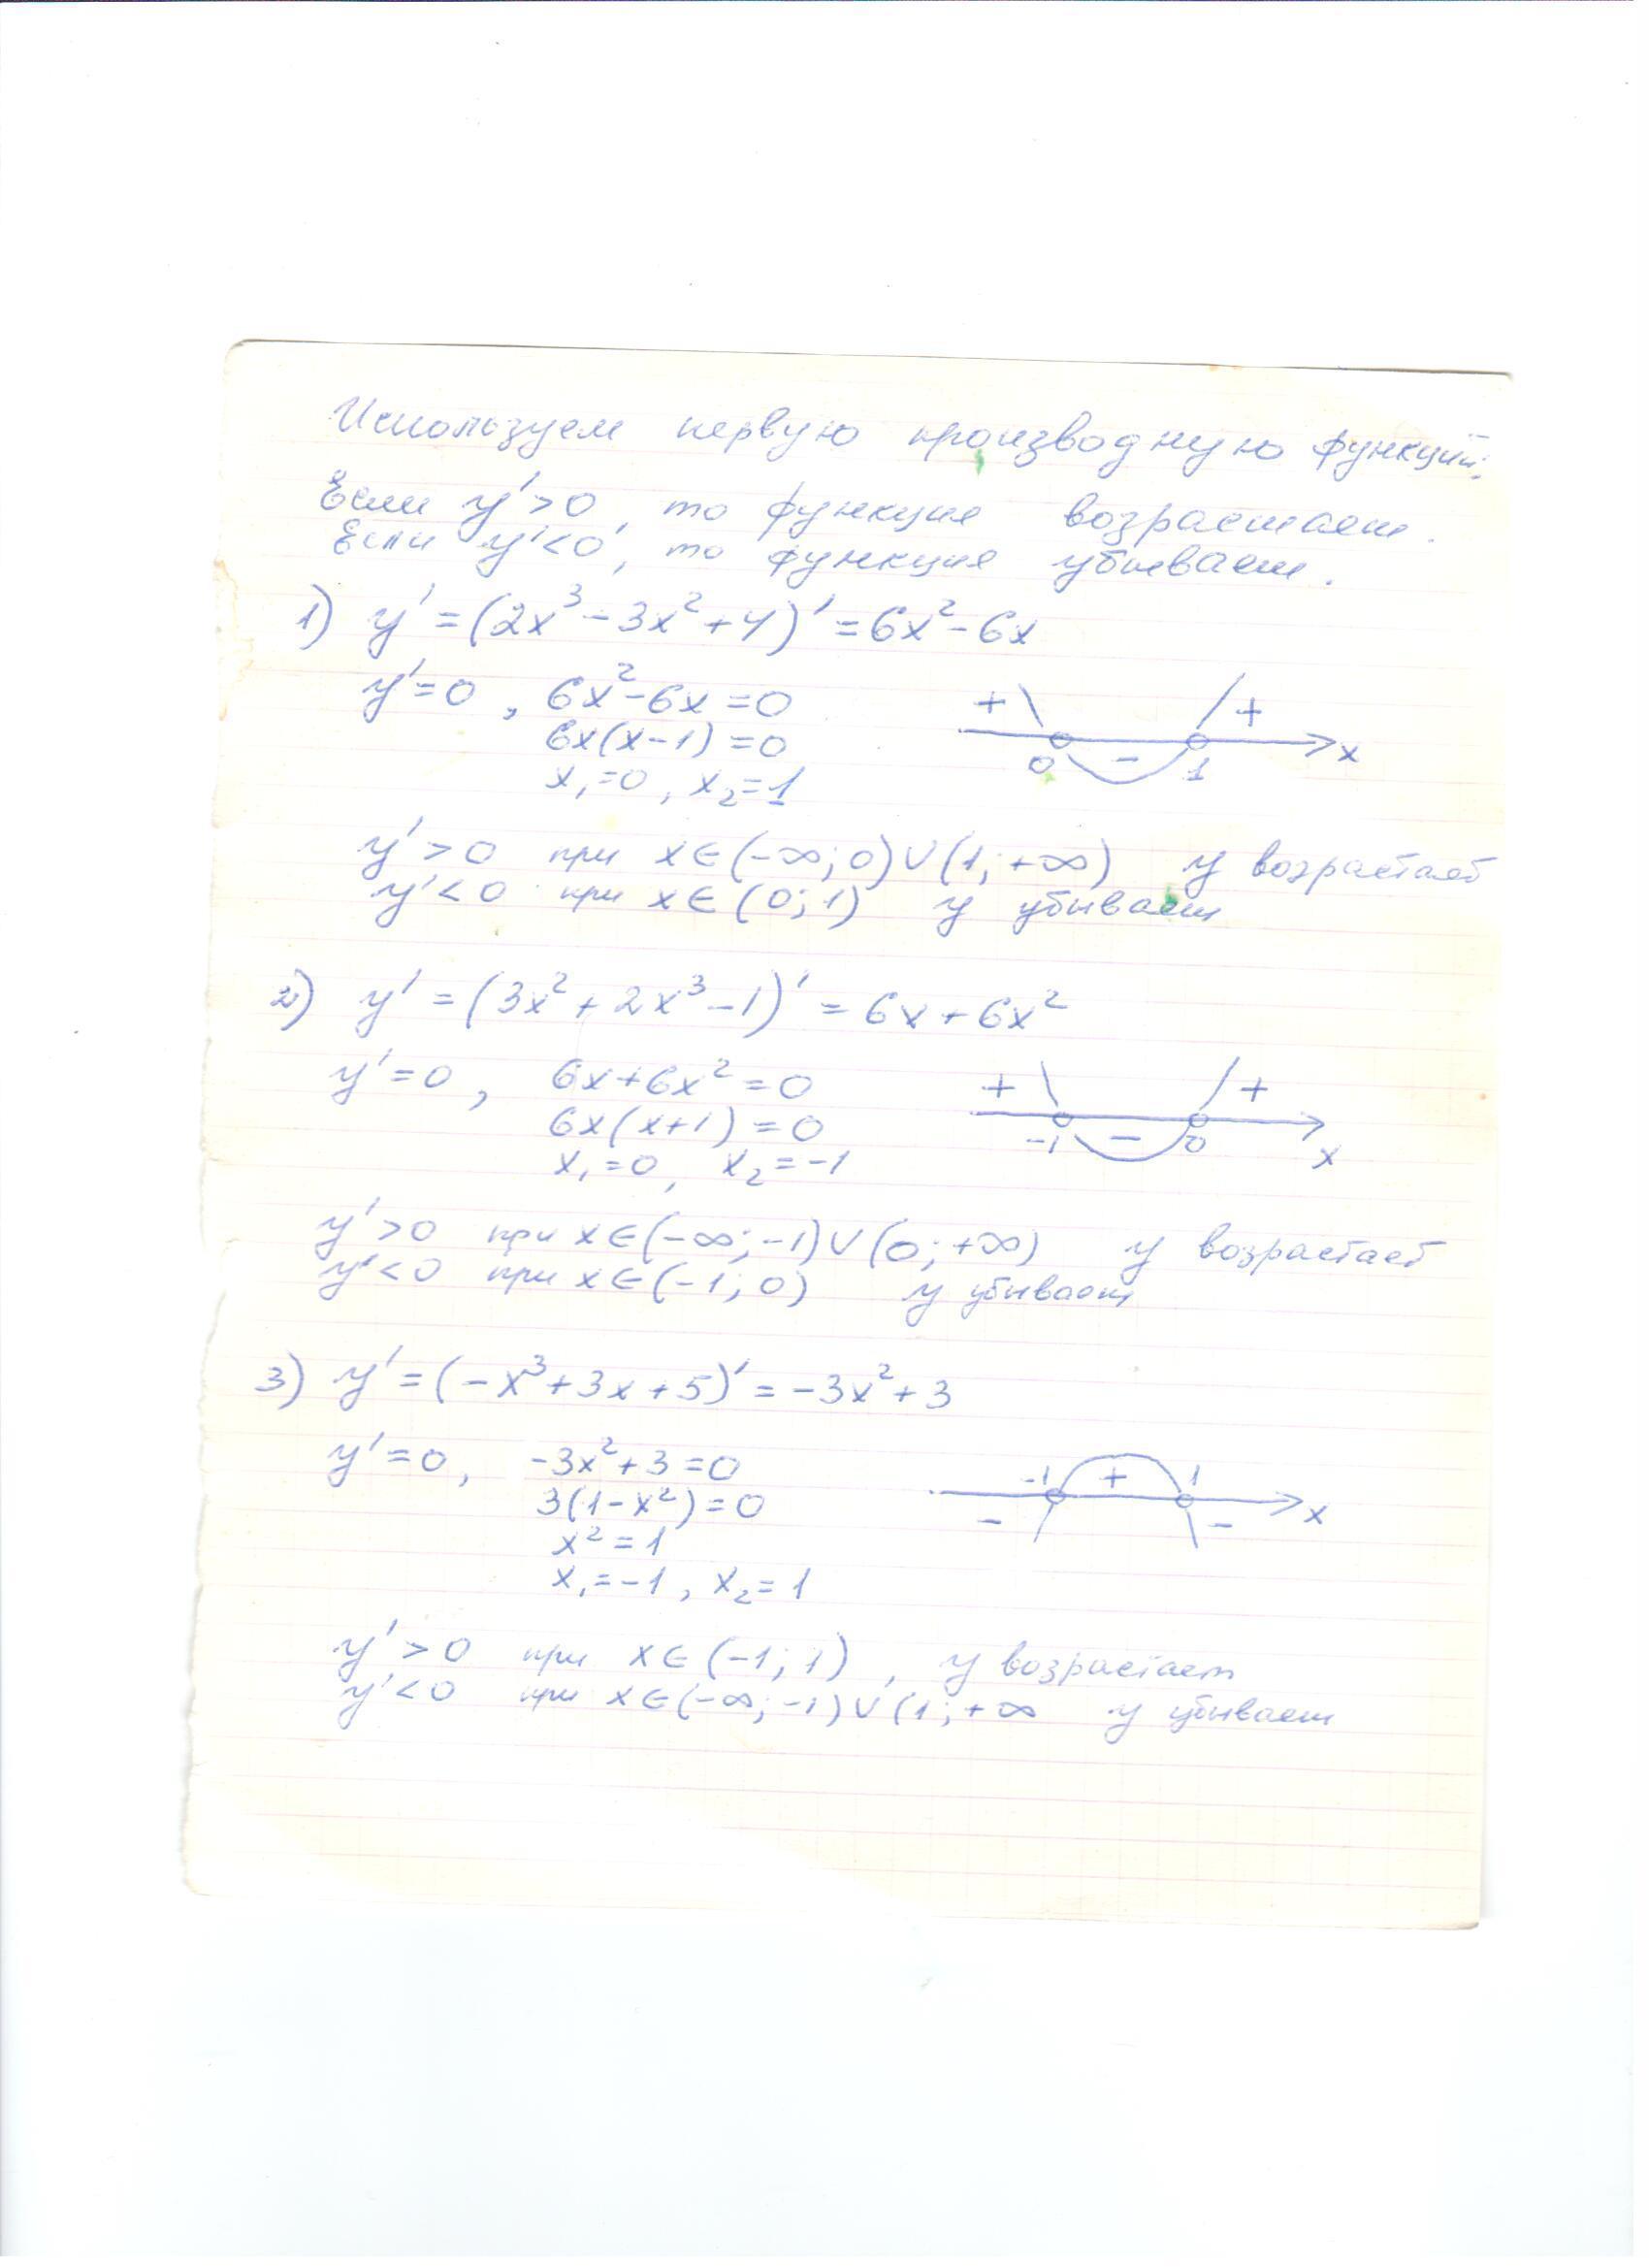 Используем первую производную функций.
Если y' > 0, то функция возрастает.
Если y' < 0, то функция убывает.
1) y' = (2x³ - 3x² + 4)' = 6x² - 6x
y' = 0, 6x² - 6x = 0
6x(x - 1) = 0
x₁ = 0, x₂ = 1
+ +
0 - 1 x
y' > 0 при x ∈ (-∞; 0) ∪ (1; +∞) y возрастает
y' < 0 при x ∈ (0; 1) y убывает
2) y' = (3x² + 2x³ - 1)' = 6x + 6x²
y' = 0, 6x + 6x² = 0
6x(x + 1) = 0
x₁ = 0, x₂ = -1
+ +
-1 - 0 x
y' > 0 при x ∈ (-∞; -1) ∪ (0; +∞) y возрастает
y' < 0 при x ∈ (-1; 0) y убывает
3) y' = (-x³ + 3x + 5)' = -3x² + 3
y' = 0, -3x² + 3 = 0
3(1 - x²) = 0
x² = 1
x₁ = -1, x₂ = 1
-1 + 1
- - x
y' > 0 при x ∈ (-1; 1), y возрастает
y' < 0 при x ∈ (-∞; -1) ∪ (1; +∞ y убывает